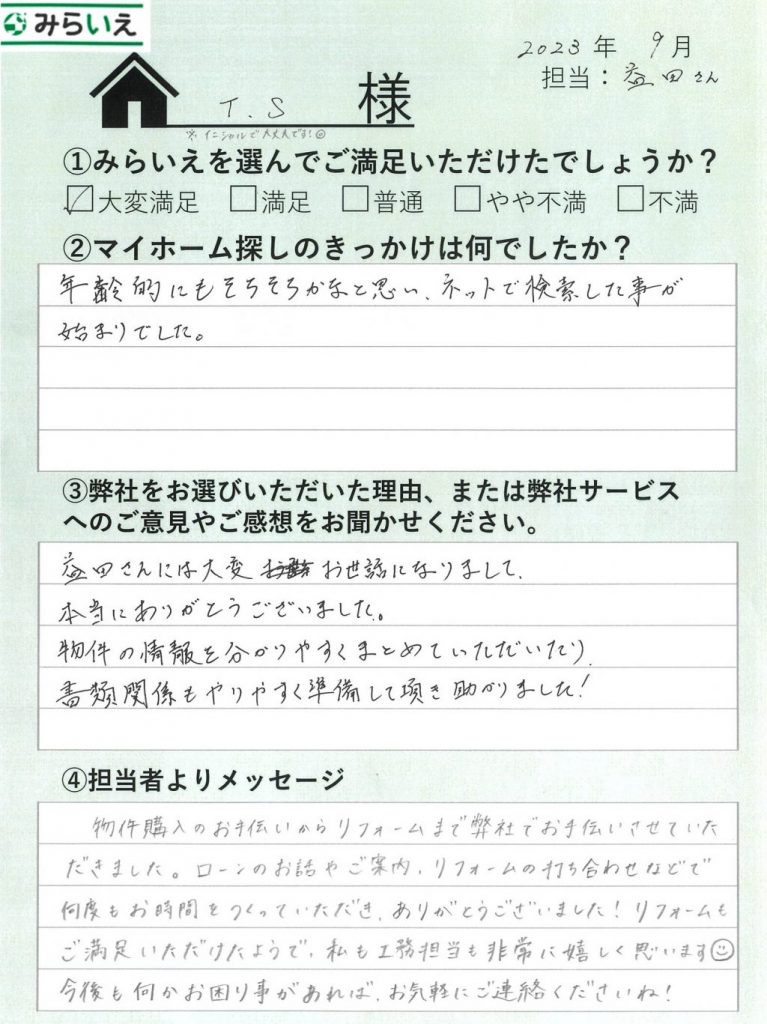 みらいえ
2023年 9月
担当：益田さん
T.S 様
※イニシャルで大丈夫です！
①みらいえを選んでご満足いただけたでしょうか？
大変満足 満足 普通 やや不満 不満
②マイホーム探しのきっかけは何でしたか？
年齢的にもそろそろかなと思い、ネットで検索した事が
始まりでした。
③弊社をお選びいただいた理由、または弊社サービス
へのご意見やご感想をお聞かせください。
益田さんには大変 お世話になりまして、
本当にありがとうございました。
物件の情報を分かりやすくまとめていただいたり、
書類関係もやりやすく準備して頂き助かりました！
④担当者よりメッセージ
物件購入のお手伝いからリフォームまで弊社でお手伝いさせていた
だきました。ローンのお話やご案内、リフォームの打ち合わせなどで
何度もお時間をつくっていただき、ありがとうございました！リフォームも
ご満足いただけたようで、私も工務担当も非常に嬉しく思います
今後も何かお困り事があれば、お気軽にご連絡くださいね！